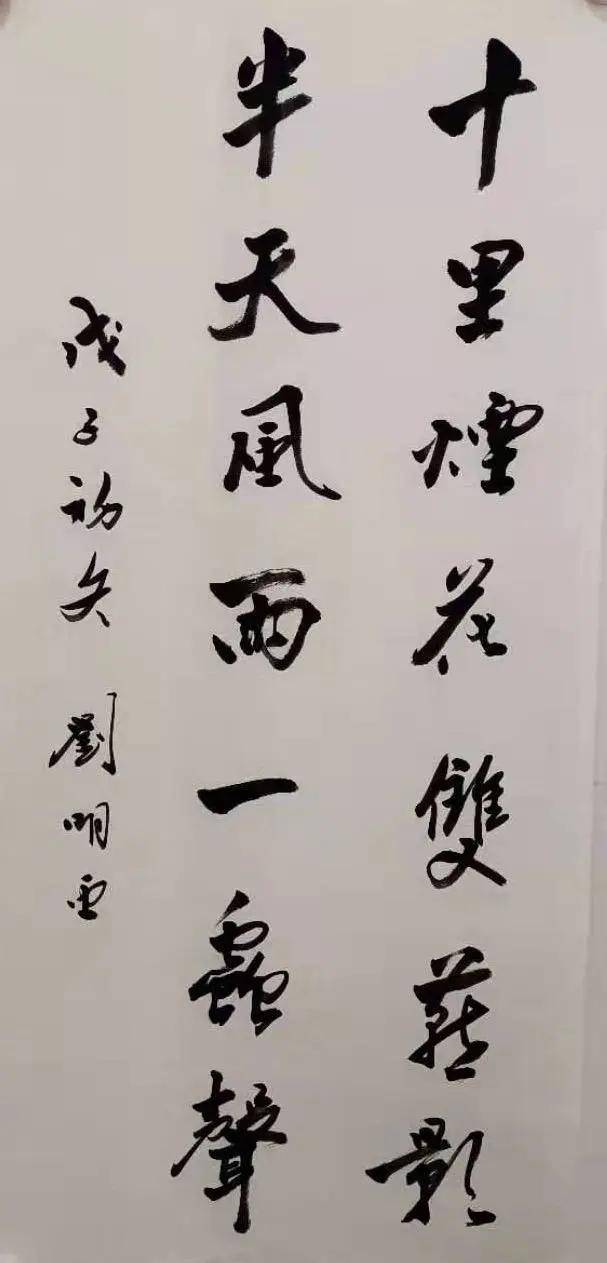 十里煙花雙燕影
半天風雨一蟲聲
戊子初冬 劉明